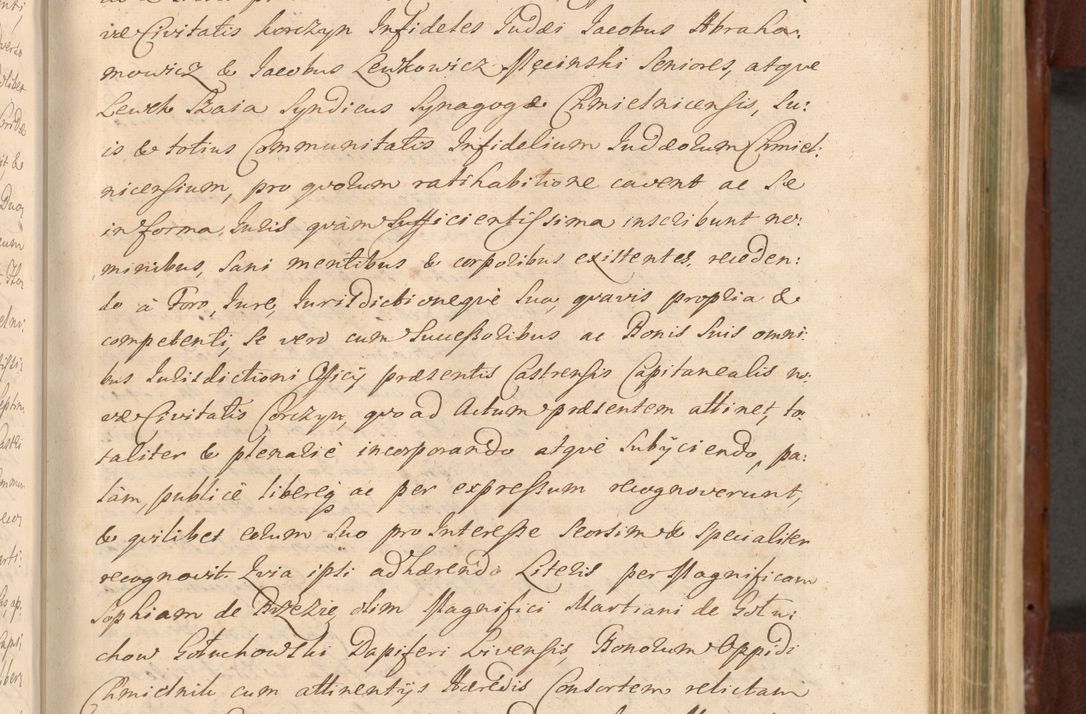 væ Civitatis Korczyn Infideles Judæi Jacobus Abraha,
mowicz & Jacobus Lewkowicz Męcinski Seniores, atque
Lewek Szaia Syndicus Synagogæ Chmielnicensis, Su:
is & totius Communitatis Infidelium Judæorum Chmiel:
nicensium, pro qvorum ratihabitione cavent ac se
in forma Juris qvam sufficientissima inscribunt no:
minibus, sani mentibus & corporibus existentes, receden:
do à Foro, Jure, Jurisdictioneqve sua, qvavis propria &
competenti, se vero cum Successoribus ac Bonis suis omni.
bus Jurisdictioni Officij præsentis Castrensis Capitanealis no:
væ Civitatis Corczyn, qvo ad Actum præsentem attinet, to:
taliter & plenariè incorporando atqve Subijciendo, pa:
làm, publicè libereq ac per expressum recognoverunt,
& qvilibet eorum suo pro Interesse seorsim & specialiter
recognovit. Qvia ipsi adhærendo Literis per Magnificam
Sophiam de Brzezie olim Magnifici Martiani de Gołu:
chow Gołuchowski Dapiferi Livensis, Bonorum Oppidi
Chmielnik cum attinentijs Hæredis Consortem relictam